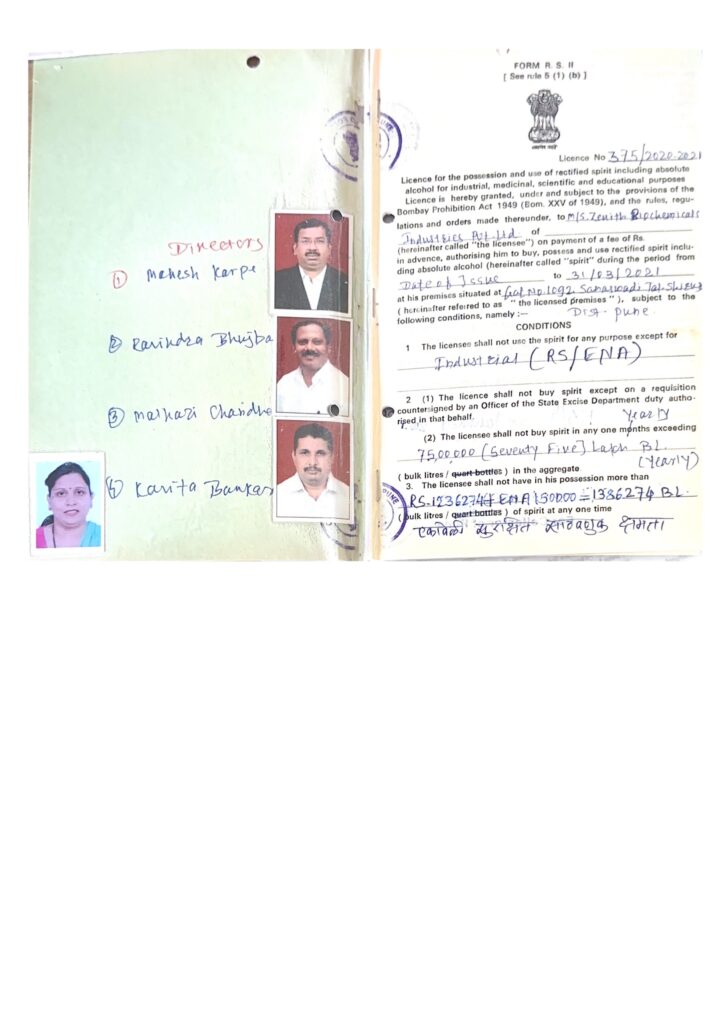 Directors
① Mahesh Karpe
② Ravindra Bhujba
③ Malhari Chandhe
④ Kavita Bankar
FORM R. S. II
[ See rule 5 (1) (b) ]
Licence No 375/2020-2021
Licence for the possession and use of rectified spirit including absolute
alcohol for industrial, medicinal, scientific and educational purposes
Licence is hereby granted, under and subject to the provisions of the
Bombay Prohibition Act 1949 (Bom. XXV of 1949), and the rules, regu-
lations and orders made thereunder, to M/S. Zenith Biochemicals
Industries Pvt. Ltd of
(hereinafter called "the licensee") on payment of a fee of Rs.
in advence, authorising him to buy, possess and use rectified spirit inclu-
ding absolute alcohol (hereinafter called "spirit" during the period from
Date of Issue to 31/03/2021
at his premises situated at Gat No. 1092 Sanaswadi Tal. Shirur
( hereinafter referred to as " the licensed premises " ), subject to the
following conditions, namely :— Dist. pune.
CONDITIONS
1 The licensee shall not use the spirit for any purpose except for
Industrial (RS/ENA)
2 (1) The licence shall not buy spirit except on a requisition
countersigned by an Officer of the State Excise Department duty autho-
rised in that behalf. Yearly
(2) The licensee shall not buy spirit in any one months exceeding
75,00,000 (Seventy Five) Lakh BL.
( bulk litres / quart bottles ) in the aggregate (Yearly)
3. The licensee shall not have in his possession more than
RS-1236274+ENA 150000=1386274 BL.
(bulk litres / quart bottles) of spirit at any one time
एकावेळी सुरक्षित साठवणुक क्षमता